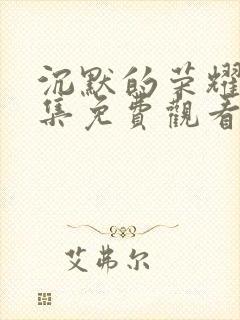 沉默的荣耀
集免費觀看
艾弗尔